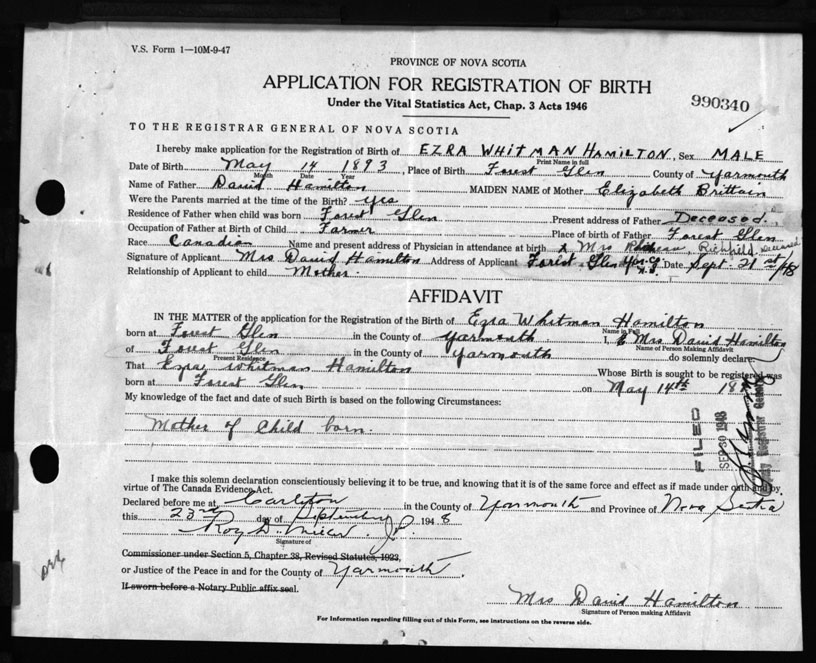 V.S. Form 1—10M-9-47
PROVINCE OF NOVA SCOTIA
APPLICATION FOR REGISTRATION OF BIRTH
Under the Vital Statistics Act, Chap. 3 Acts 1946
990340
TO THE REGISTRAR GENERAL OF NOVA SCOTIA
I hereby make application for the Registration of Birth of EZRA WHITMAN HAMILTON, Sex MALE
Print Name in full
Date of Birth May 14 1893, Place of Birth Forest Glen County of Yarmouth
Month Date Year
Name of Father David Hamilton MAIDEN NAME of Mother Elizabeth Brittain
Were the Parents married at the time of Birth? Yes
Residence of Father when child was born Forest Glen Present address of Father Deceased.
Occupation of Father at Birth of Child Farmer Place of birth of Father Forest Glen
Race Canadian Name and present address of Physician in attendance at birth Mrs Richfield, Deceased
Signature of Applicant Mrs David Hamilton Address of Applicant Forest Glen Yar. Co. N.S. Date Sept. 21st/48
Relationship of Applicant to child Mother.
AFFIDAVIT
IN THE MATTER of the application for the Registration of the Birth of Ezra Whitman Hamilton
Name in Full
born at Forest Glen in the County of Yarmouth I, Mrs David Hamilton
Name of Person Making Affidavit
of Forest Glen in the County of Yarmouth do solemnly declare:
Present Residence
That Ezra Whitman Hamilton Whose Birth is sought to be registered was
born at Forest Glen on May 14th 189
My knowledge of the fact and date of such Birth is based on the following Circumstances:
Mother of Child born.
FILED
SEP 30 1948
Deputy Registrar General
I make this solemn declaration conscientiously believing it to be true, and knowing that it is of the same force and effect as if made under oath and by
virtue of The Canada Evidence Act.
Declared before me at Carleton in the County of Yarmouth and Province of Nova Scotia
this 23rd day of September 1948
Roy D. J.P.
Signature of
Commissioner under Section 5, Chapter 38, Revised Statutes, 1923,
or Justice of the Peace in and for the County of Yarmouth.
If sworn before a Notary Public affix seal.
Mrs David Hamilton
Signature of Person making Affidavit
For Information regarding filling out of this Form, see instructions on the reverse side.